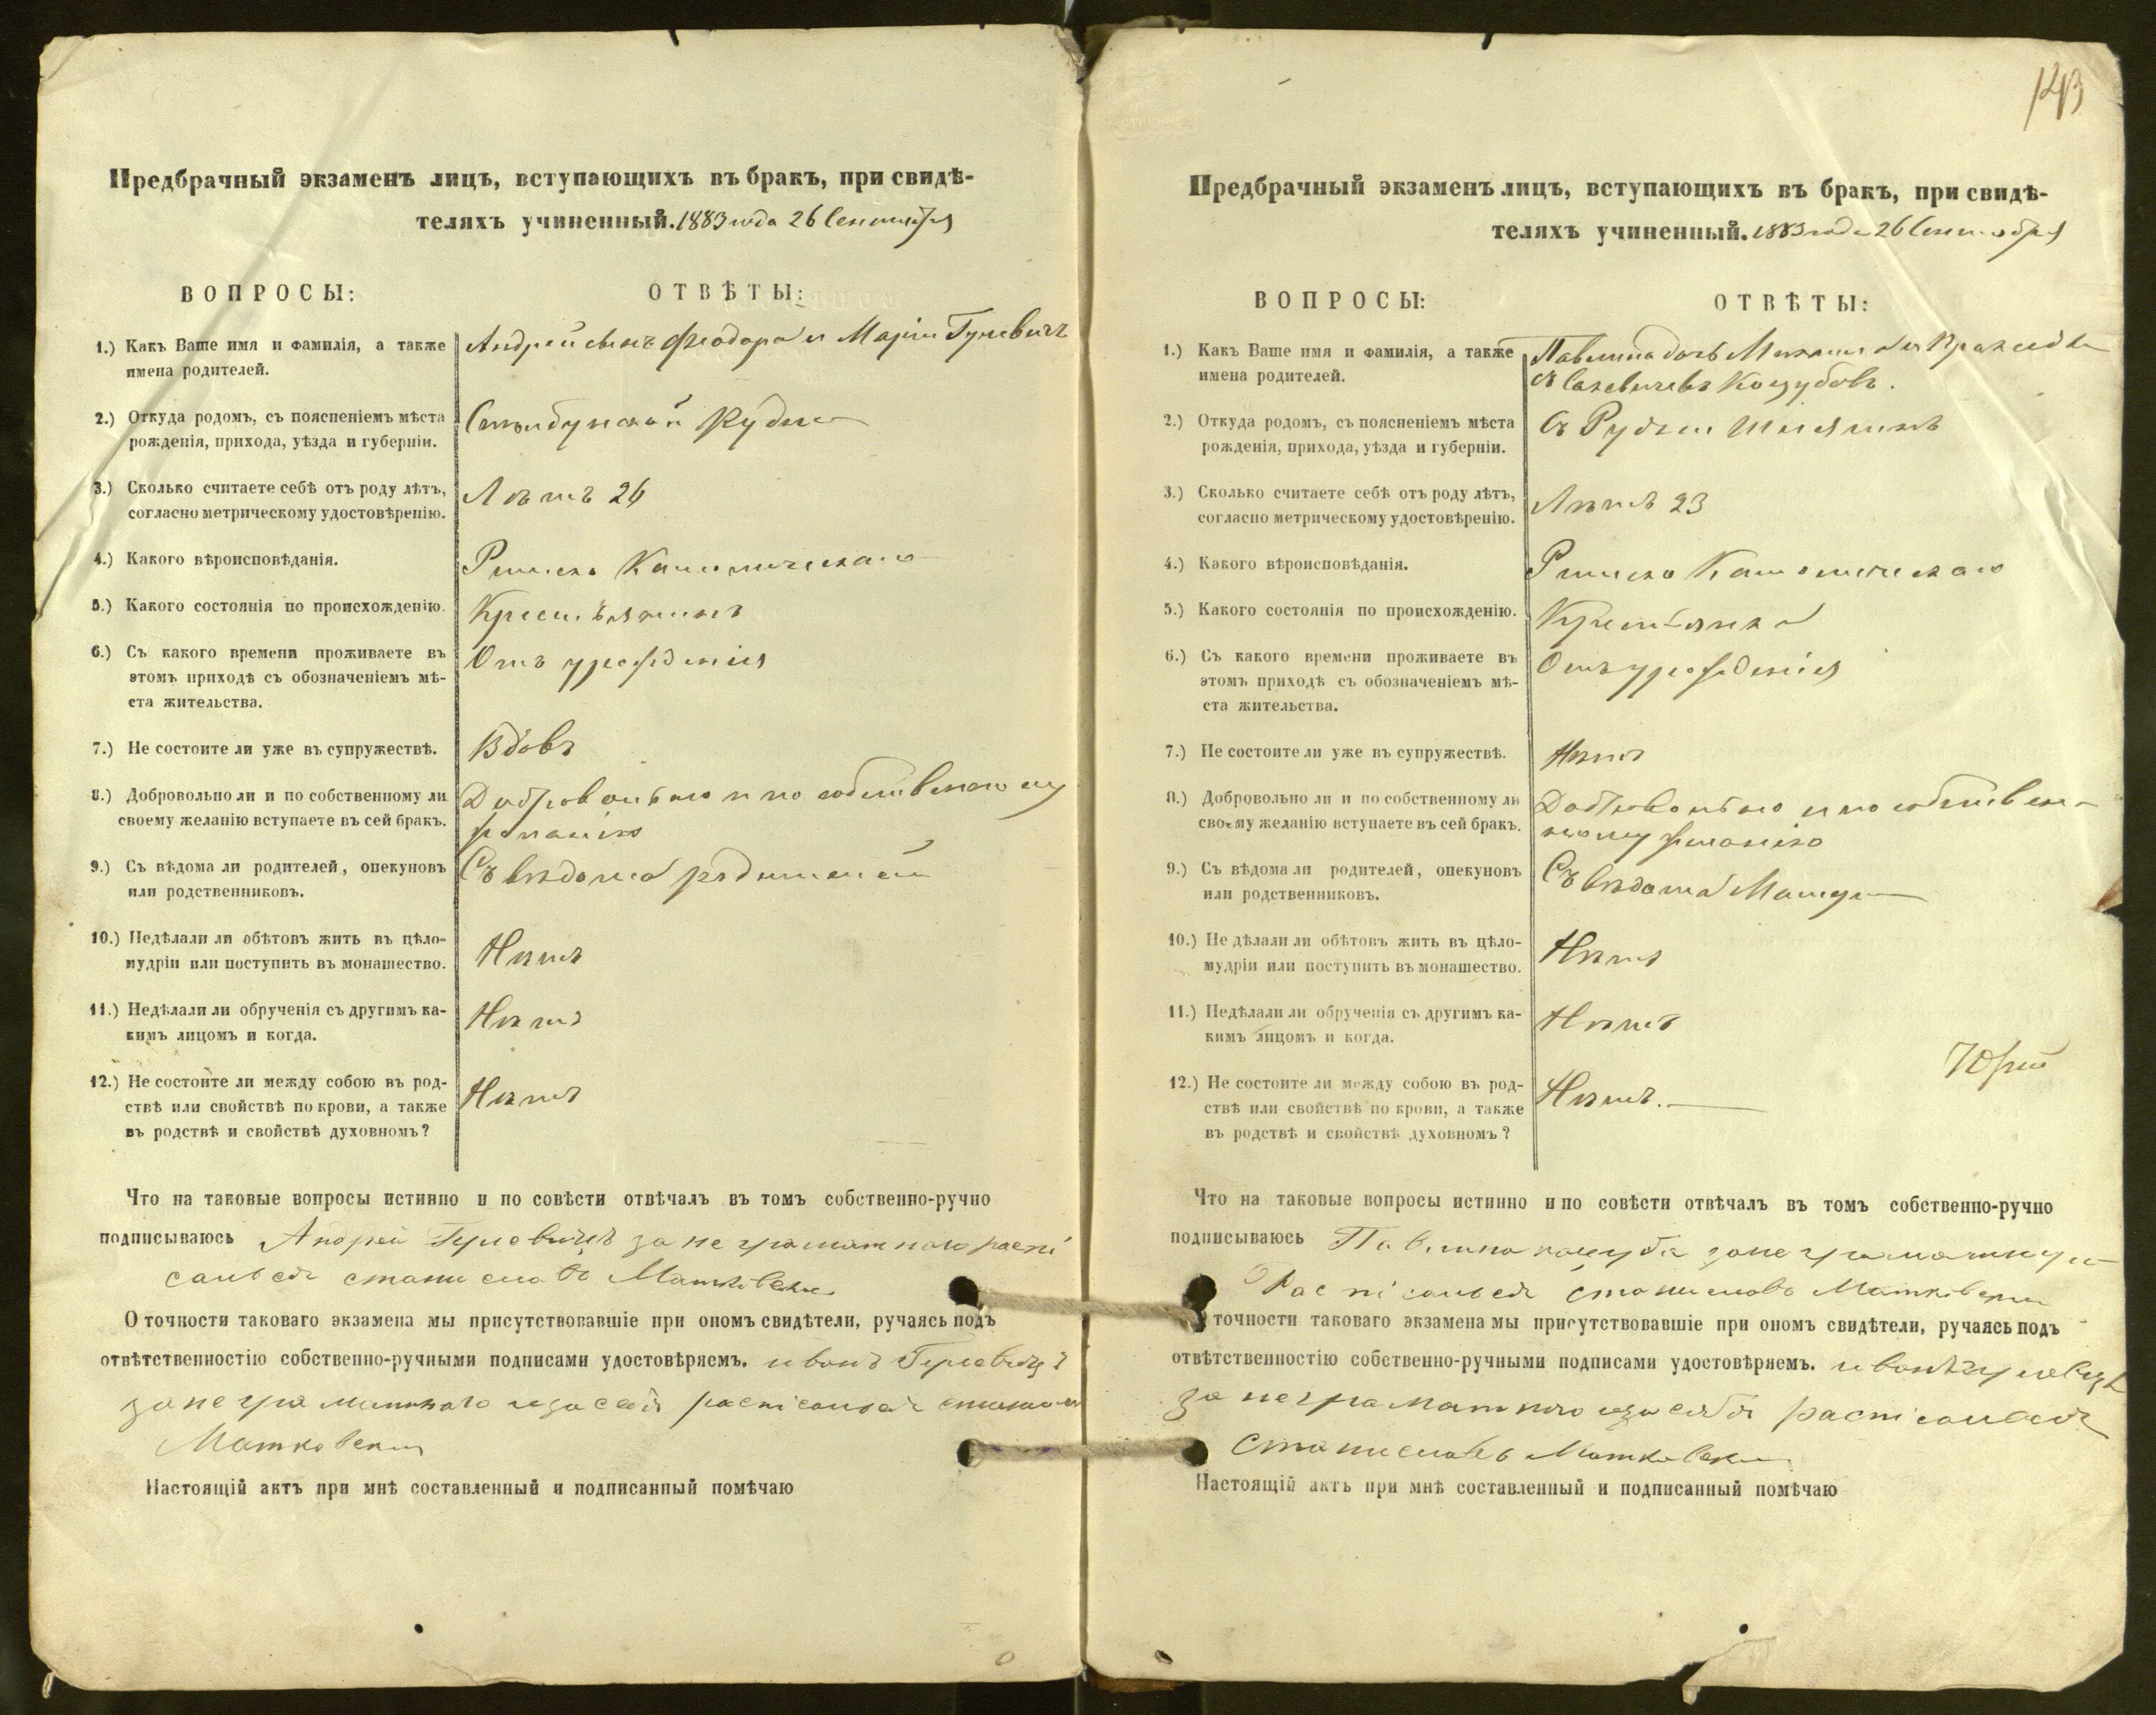 Предбрачный экзаменъ лицъ, вступающихъ въ бракъ, при свидѣ-
теляхъ учиненный. 1883 года 26 Сентября
ВОПРОСЫ:
ОТВѢТЫ:
1.) Какъ Ваше имя и фамилія, а также
имена родителей.
Андрей сынъ Феодора и Маріи Гулевичъ
2.) Откуда родомъ, съ поясненіемъ мѣста
рожденія, прихода, уѣзда и губерніи.
Рудни
3.) Сколько считаете себѣ отъ роду лѣтъ,
согласно метрическому удостовѣренію.
Лѣтъ 24
4.) Какого вѣроисповѣданія.
Римско Католическаго
5.) Какого состоянія по происхожденію.
Крестьянинъ
6.) Съ какого времени проживаете въ
этомъ приходѣ съ обозначеніемъ мѣ-
ста жительства.
Отъ урожденія
7.) Не состоите ли уже въ супружествѣ.
Вдовъ
8.) Добровольно ли и по собственному ли
своему желанію вступаете въ сей бракъ.
Добровольно и по собственному
желанію
9.) Съ вѣдома ли родителей, опекуновъ
или родственниковъ.
Съ вѣдома родителей
10.) Недѣлали ли обѣтовъ жить въ цѣло-
мудріи или поступить въ монашество.
Нѣтъ
11.) Недѣлали ли обрученія съ другимъ ка-
кимъ лицомъ и когда.
Нѣтъ
12.) Не состоите ли между собою въ род-
ствѣ или свойствѣ по крови, а также
въ родствѣ и свойствѣ духовномъ?
Нѣтъ
Что на таковые вопросы истинно и по совѣсти отвѣчалъ въ томъ собственно-ручно
подписываюсь Андрей Гулевичъ за не граматнаго распі
сался станиславъ Матковски
О точности таковаго экзамена мы присутствовавшіе при ономъ свидѣтели, ручаясь подъ
отвѣтственностію собственно-ручными подписами удостовѣряемъ. иванъ Гулевичъ
за не граматнаго и за себя расписался
Матковски
Настоящій актъ при мнѣ составленный и подписанный помѣчаю
143
Предбрачный экзаменъ лицъ, вступающихъ въ бракъ, при свидѣ-
теляхъ учиненный. 1883 года 26 Сентября
ВОПРОСЫ:
ОТВѢТЫ:
1.) Какъ Ваше имя и фамилія, а также
имена родителей.
Павлина дочь
Козубовъ.
2.) Откуда родомъ, съ поясненіемъ мѣста
рожденія, прихода, уѣзда и губерніи.
Съ Рудни
3.) Сколько считаете себѣ отъ роду лѣтъ,
согласно метрическому удостовѣренію.
Лѣтъ 23
4.) Какого вѣроисповѣданія.
Римско Католическаго
5.) Какого состоянія по происхожденію.
Крестьянка
6.) Съ какого времени проживаете въ
этомъ приходѣ съ обозначеніемъ мѣ-
ста жительства.
Отъ урожденія
7.) Не состоите ли уже въ супружествѣ.
Нѣтъ
8.) Добровольно ли и по собственному ли
своему желанію вступаете въ сей бракъ.
Добровольно и по собствен-
ному желанію
9.) Съ вѣдома ли родителей, опекуновъ
или родственниковъ.
Съ вѣдома Матери
10.) Не дѣлали ли обѣтовъ жить въ цѣло-
мудріи или поступить въ монашество.
Нѣтъ
11.) Недѣлали ли обрученія съ другимъ ка-
кимъ лицомъ и когда.
Нѣтъ
12.) Не состоите ли между собою въ род-
ствѣ или свойствѣ по крови, а также
въ родствѣ и свойствѣ духовномъ?
Нѣтъ.
Что на таковые вопросы истинно и по совѣсти отвѣчалъ въ томъ собственно-ручно
подписываюсь Павлина козуба за не граматную
Распісался станиславъ Матковски
точности таковаго экзамена мы присутствовавшіе при ономъ свидѣтели, ручаясь подъ
отвѣтственностію собственно-ручными подписами удостовѣряемъ. иванъ гулевичъ
за не граматнаго и за себя распісался
Станиславъ Матковски
Настоящій актъ при мнѣ составленный и подписанный помѣчаю